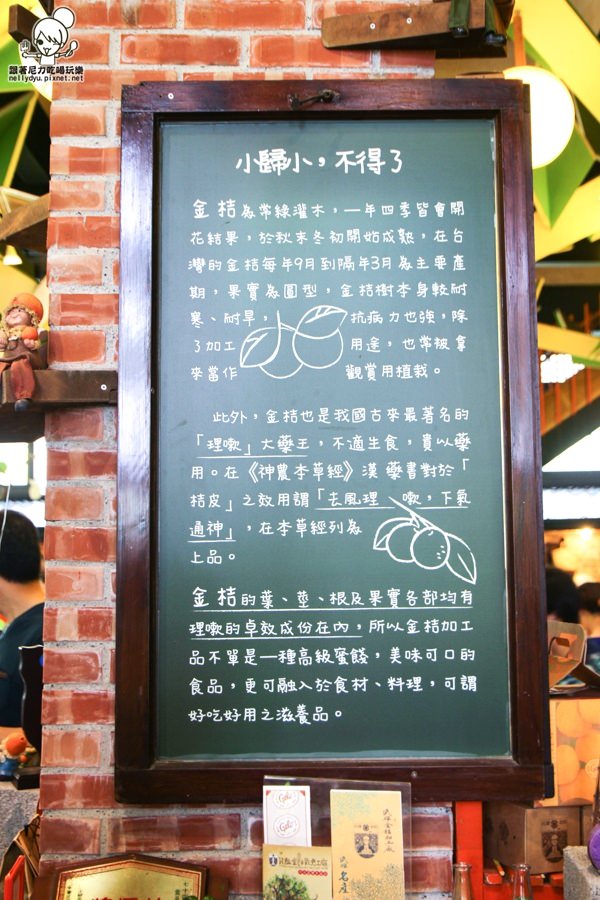 跟著尼力吃喝玩樂
nellydyu.pixnet.net
小歸小，不得了
金桔為常綠灌木，一年四季皆會開
花結果，於秋末冬初開始成熟，在台
灣的金桔每年9月到隔年3月為主要產
期，果實為圓型，金桔樹本身較耐
寒、耐旱，抗病力也強，除
了加工用途，也常被拿
來當作觀賞用植栽。
此外，金桔也是我國古來最著名的
「理嗽」大藥王，不適生食，貴以藥
用。在《神農本草經》漢藥書對於「
桔皮」之效用謂「去風理嗽，下氣
通神」，在本草經列為
上品。
金桔的葉、莖、根及果實各部均有
理嗽的卓效成份在內，所以金桔加工
品不單是一種高級蜜餞，美味可口的
食品，更可融入於食材、料理，可謂
好吃好用之滋養品。